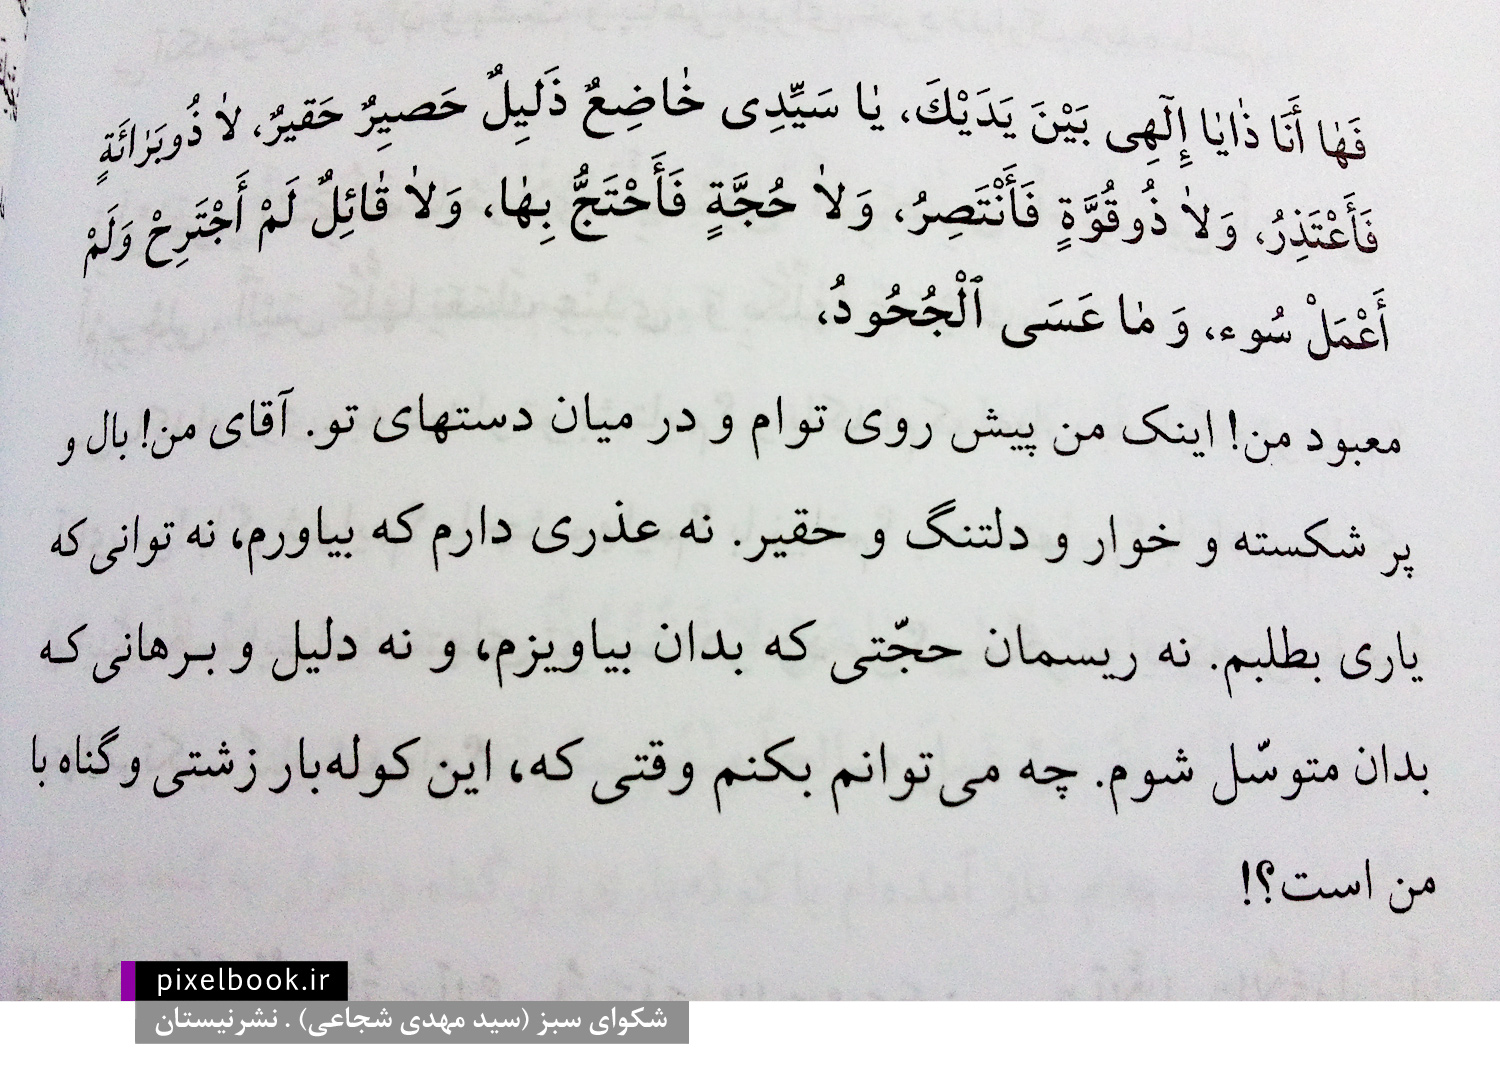 فَهٰا أَنَا ذٰایٰا إِلٓهِی بَیْنَ یَدَیْكَ، یٰا سَیِّدِی خٰاضِعٌ ذَلیِلٌ حَصیِرٌ حَقیرٌ، لاٰ ذُوبَرٰائَةٍ
فَأَعْتَذِرُ، وَلاٰ ذُوقُوَّةٍ فَأَنْتَصِرُ، وَلاٰ حُجَّةٍ فَأَحْتَجُّ بِهٰا، وَلاٰ قٰائِلٌ لَمْ أَجْتَرِحْ وَلَمْ
أَعْمَلْ سُوء، وَ مٰا عَسَی ٱلْجُحُودُ،
معبود من! اینک من پیش روی توام و در میان دستهای تو. آقای من! بال و
پر شکسته و خوار و دلتنگ و حقیر. نه عذری دارم که بیاورم، نه توانی که
یاری بطلبم. نه ریسمان حجّتی که بدان بیاویزم، و نه دلیل و برهانی که
بدان متوسّل شوم. چه می‌توانم بکنم وقتی که، این کوله‌بار زشتی و گناه با
من است؟!
pixelbook.ir
شکوای سبز (سید مهدی شجاعی) . نشرنیستان